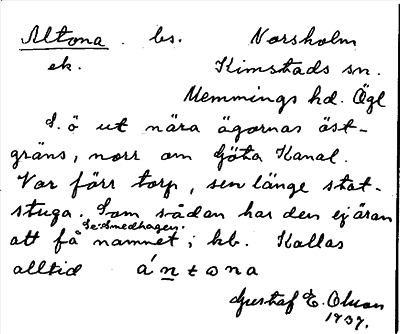 Altona. bs. Norsholm
ek. Kimstads sn.
Memmings hd. Ögl
L. ö ut nära ägornas öst-
gräns, norr om Göta Kanal.
Var förr torp, sen länge stat-
stuga. Som sådan har den ej äran
Se Smedhagen.
att få namnet i kb. Kallas
alltid án t ɷ na
Gustaf E. Olsson
1937.